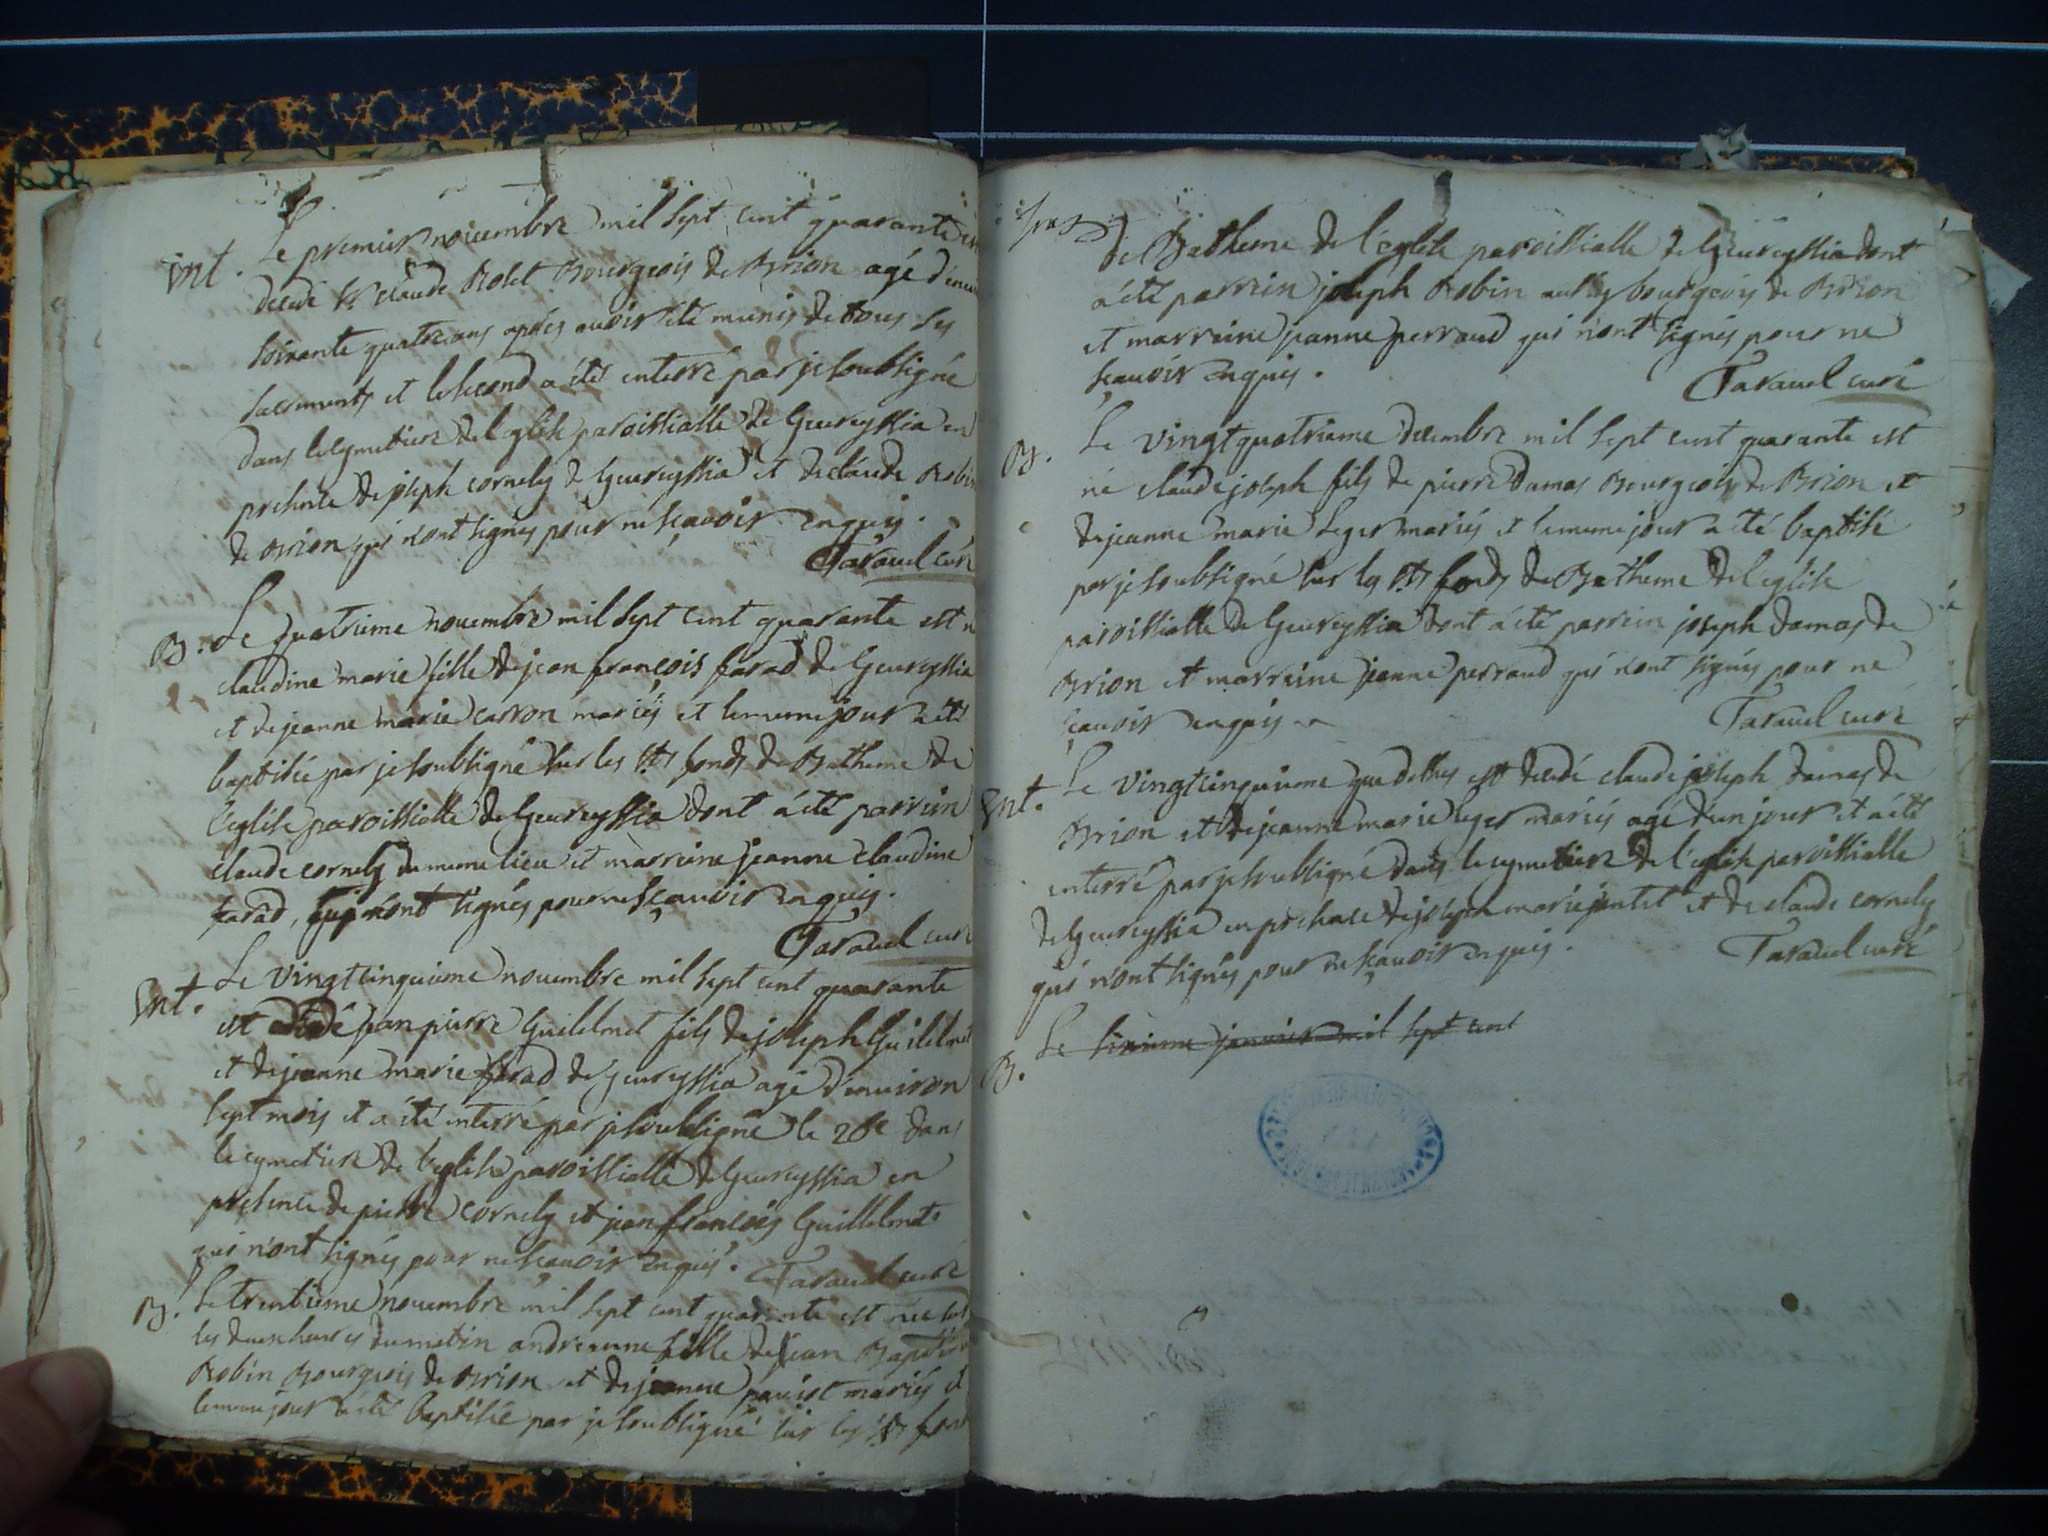 Int. Le premier nouembre mil sept cent quarante est
decedé Sr. claude Robet Bourgeois de Brion agé d'enui
soixante quatre ans aprés auoir été munis de tous ses
sacrements et le second a été enterré par je soubsigné
dans le cymetiere de l'eglise paroissialle de Geureyssia en
presence de joseph cornely de Geureyssia et de claude Robin
de Brion qui n'ont signés pour ne sçauoir enquis.
Tarauel curé
B. Le quatrieme nouembre mil sept cent quarante est n
claudine marie fille de jean françois farad de Geureyssia
et de jeanne marie carron mariés et le meme jour a été
baptisée par je soubsigné sur les Sts fonds de Batheme de
l'eglise paroissialle de Geureyssia dont a été parrein
claude cornely du meme lieu et marreine jeanne claudine
farad, qui n'ont signés pour ne sçauoir enquis.
Tarauel curé
Int. Le vingtcinquieme nouembre mil sept cent quarante
est decedé jean pierre Guilelmet fils de joseph Guilelmet
et de jeanne marie farad de geureyssia agé d'enuiron
sept mois et a été enterré par je soubsigné le 26e dans
le cymetiere de l'eglise paroissialle de Geureyssia en
presence de pierre cornely et jean françois Guillelmet
qui n'ont signés pour ne sçauoir enquis. Tarauel curé
B. Le trentieme nouembre mil sept cent quarante est née sur
les deux heures du matin andreanne fille de jean Baptiste
Robin Bourgeois de Brion et de jeanne pauiot mariés et
le meme jour a été baptisée par je soubsigné sur les Sts fond
de Batheme de l'eglise paroissialle de Geureyssia dont
a été parrein joseph Robin aussy bourgeois de Brion
et marreine jeanne perraud qui n'ont signés pour ne
sçauoir enquis.
Tarauel curé
B. Le vingtquatrieme decembre mil sept cent quarante est
né claude joseph fils de pierre damas Bourgeois de Brion et
de jeanne marie Leger mariés et le meme jour a été baptisé
par je soubsigné sur les Sts fonds de Batheme de l'eglise
paroissialle de Geureyssia dont a été parrein joseph damas de
Brion et marreine jeanne perraud qui n'ont signés pour ne
sçauoir enquis
Tarauel curé
Int. Le vingtcinquieme que dessus est decedé claude joseph damas de
Brion et de jeanne marie leger mariés agé d'un jour et a été
enterré par je soubsigné dans le cymetiere de l'eglise paroissialle
de Geureyssia en presence de joseph marie jantet et de claude cornely
qui n'ont signés pour ne sçauoir enquis.
Tarauel curé
B. Le sixieme januier mil sept cent